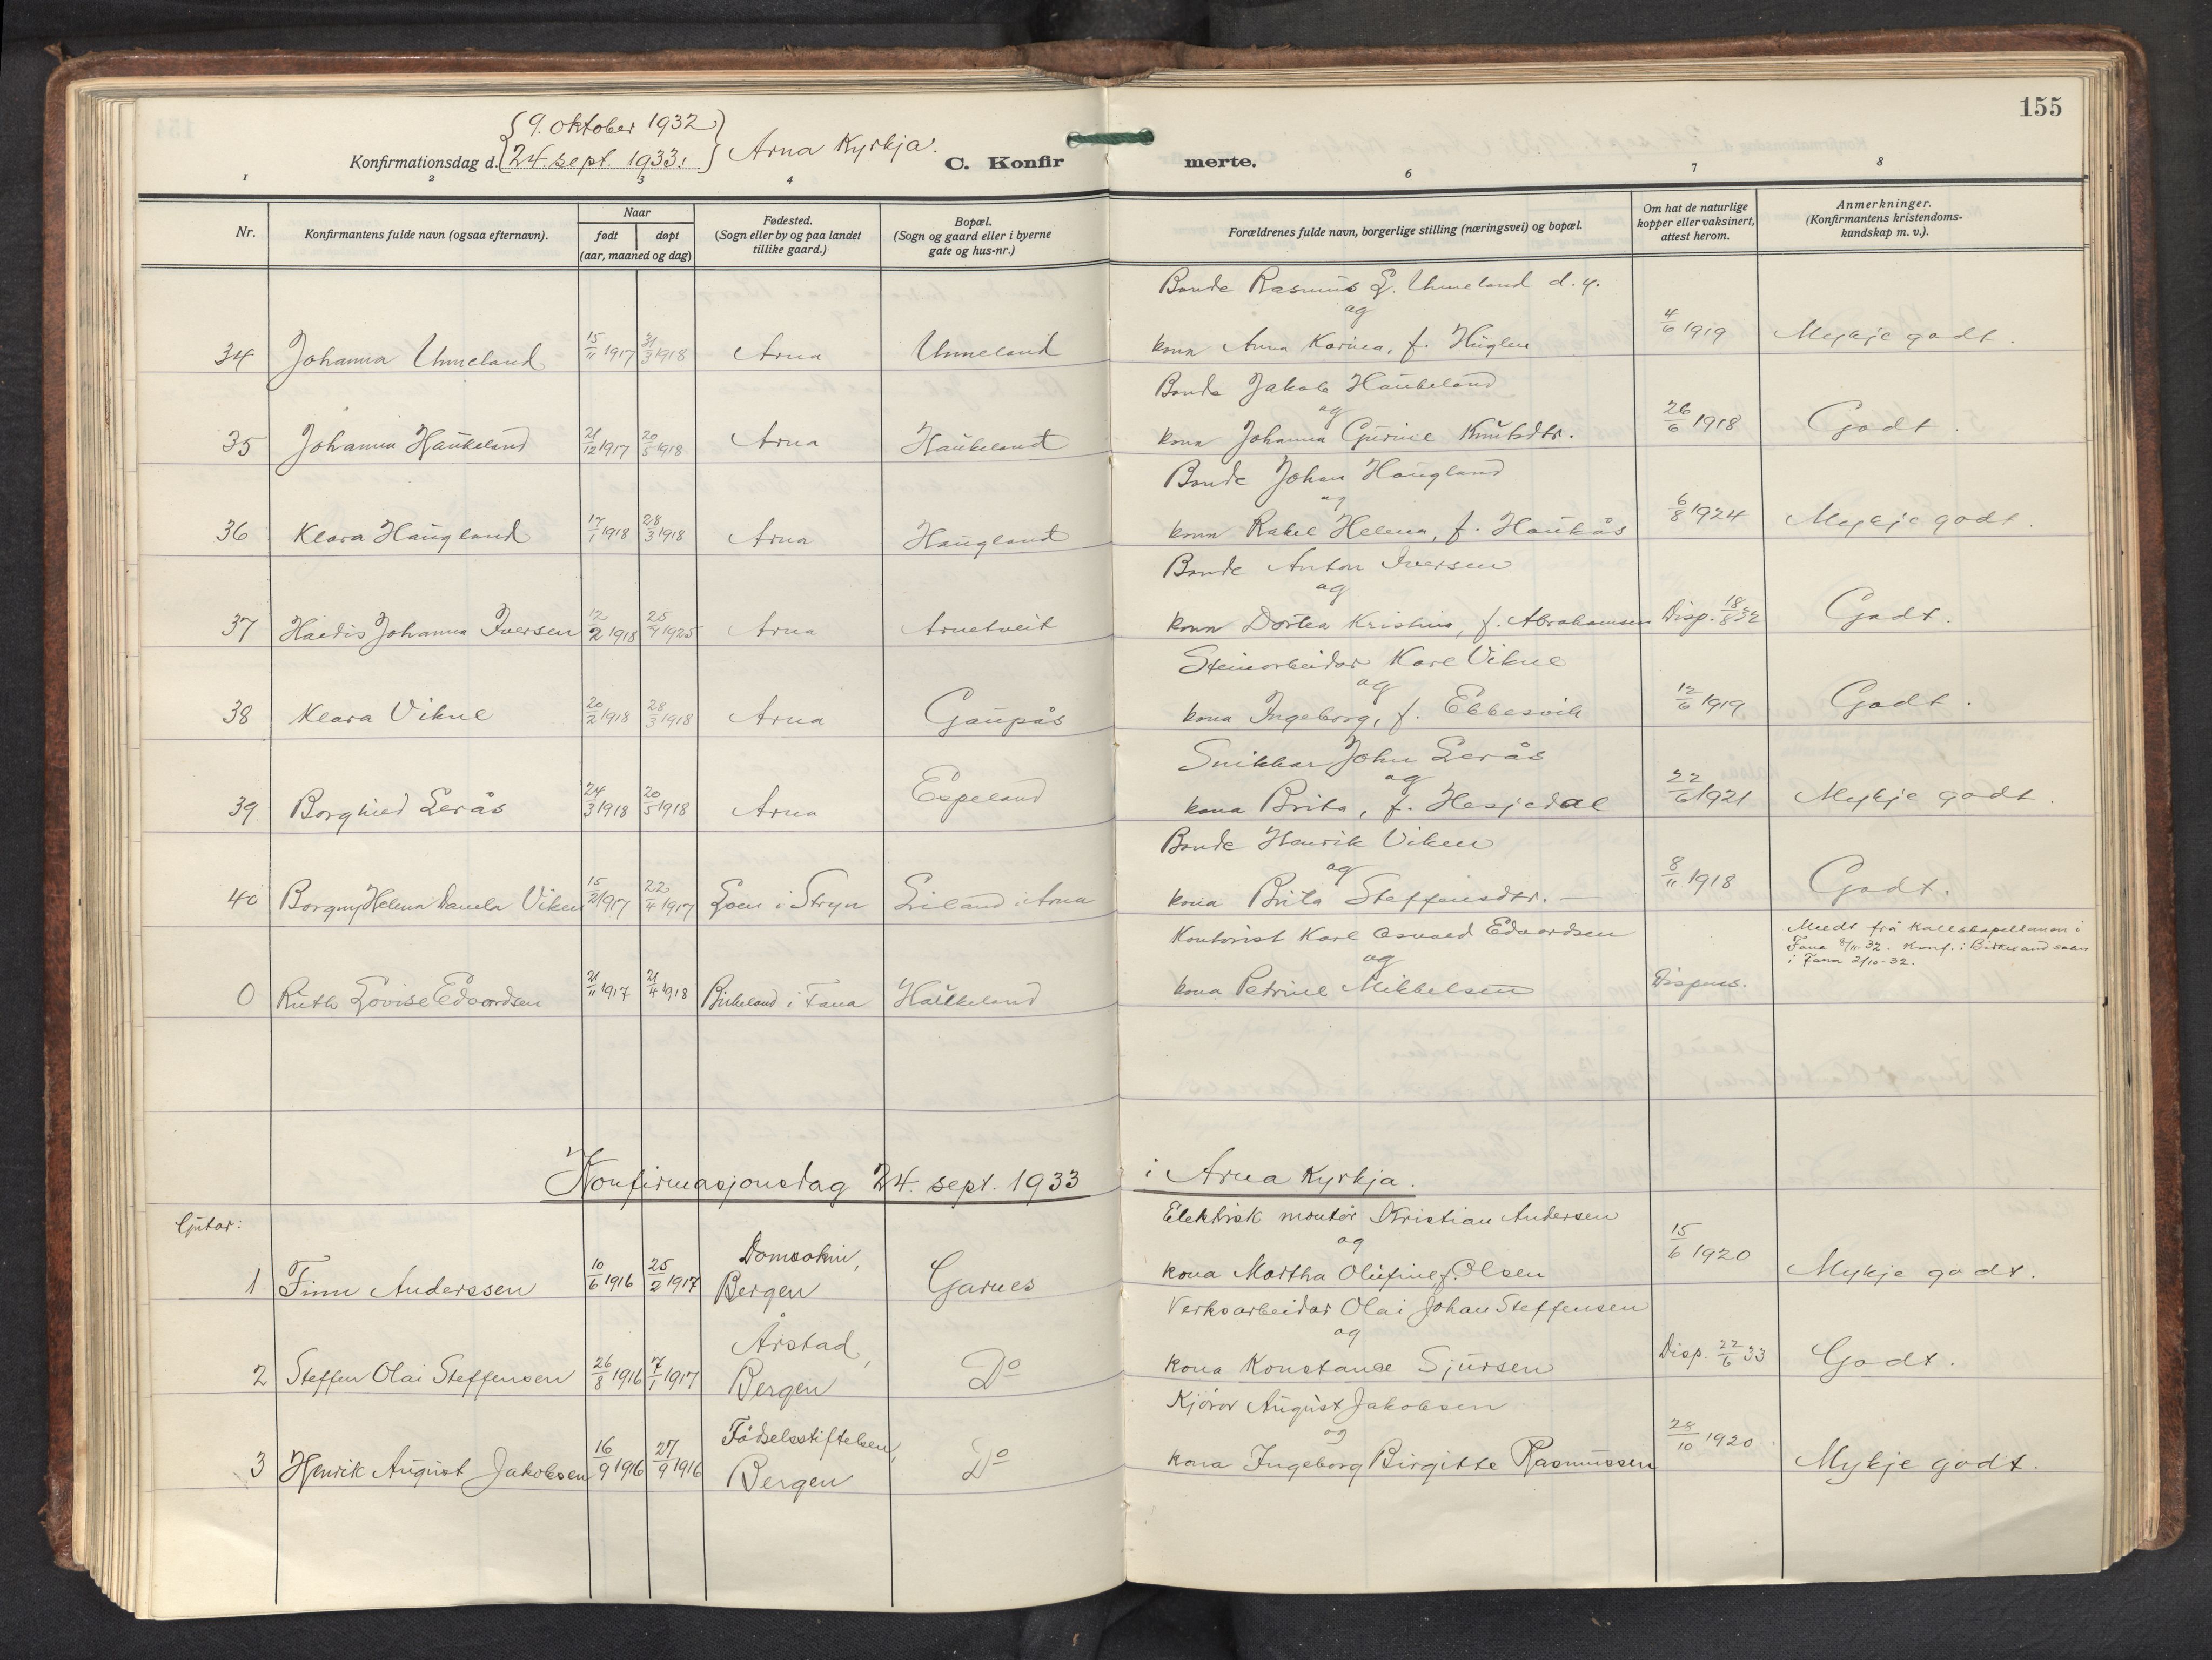 155
9. oktober 1932
Konfirmationsdag d. 24. sept. 1933. Arna Kyrkja.
C. Konfirmerte.
1 2 3 4 6 7 8
Nr.
Konfirmantens fulde navn (ogsaa efternavn).
Naar
født døpt
(aar, maaned og dag)
Fødested.
(Sogn eller by og paa landet
tillike gaard.)
Bopæl.
(Sogn og gaard eller i byerne
gate og hus-nr.)
Forældrenes fulde navn, borgerlige stilling (næringsvei) og bopæl.
Om hat de naturlige
kopper eller vaksinert,
attest herom.
Anmerkninger.
(Konfirmantens kristendoms-
kundskap m. v.).
Bonde Rasmus L. Unneland d.y.
og
34 Johanna Unneland 15/11 1917 31/3 1918 Arna Unneland kona Anna Karina, f. Huglen 4/6 1919 Mykje godt.
Bonde Jakob Haukeland
og
35 Johanna Haukeland 21/12 1917 20/5 1918 Arna Haukeland kona Johanna Gurine Knutsdtr. 26/6 1918 Godt.
Bonde Johan Haugland
og
36 Klara Haugland 17/1 1918 28/3 1918 Arna Haugland kona Rakel Helena, f. Haukås 6/8 1924 Mykje godt.
Bonde Anton Iversen
og
37 Haldis Johanna Iversen 12/2 1918 25/4 1925 Arna Arnetveit kona Dortea Kristina, f. Abrahamsen Disp. 18/8 32 Godt.
Steinarbeidar Karl Vikne
og
38 Klara Vikne 20/2 1918 28/3 1918 Arna Gaupås kona Ingeborg, f. Ebbesvik 12/6 1919 Godt.
Snikkar John Lerås
og
39 Borghild Lerås 24/3 1918 20/5 1918 Arna Espeland kona Brita, f. Hesjedal 22/6 1921 Mykje godt.
Bonde Henrik Viken
og
40 Borgny Helena Viken 15/2 1917 22/4 1917 Loen i Stryn Liland i Arna kona Brita Steffensdtr. 8/11 1918 Godt.
Kontorist Karl Osvald Edvardsen
og
Meldt frå kallskapellanen i
Fana 8/11-32. Konf. i Birkeland sokn
i Fana 2/10-32.
0 Ruth Lovise Edvardsen 21/11 1917 21/4 1918 Birkeland i Fana Haukeland kona Petrine Mikkelsen Dispens.
Konfirmasjonsdag 24. sept. 1933 i Arna Kyrkja.
Gutar:
Elektrisk montør Kristian Andersen
og
1 Finn Anderssen 10/6 1916 25/2 1917 Domsokn, Bergen Garnes kona Martha Olufine f. Olsen 15/6 1920 Mykje godt.
Verksarbeidar Olai Johan Steffensen
og
2 Steffen Olai Steffensen 26/8 1916 7/1 1917 Årstad, Bergen Do kona Konstanse Sjursen Disp. 22/6 33 Godt.
Kjørar August Jakobsen
og
3 Henrik August Jakobsen 16/9 1916 27/9 1916 Fødselsstiftelsen, Bergen Do kona Ingeborg Birgitte Rasmussen 28/10 1920 Mykje godt.